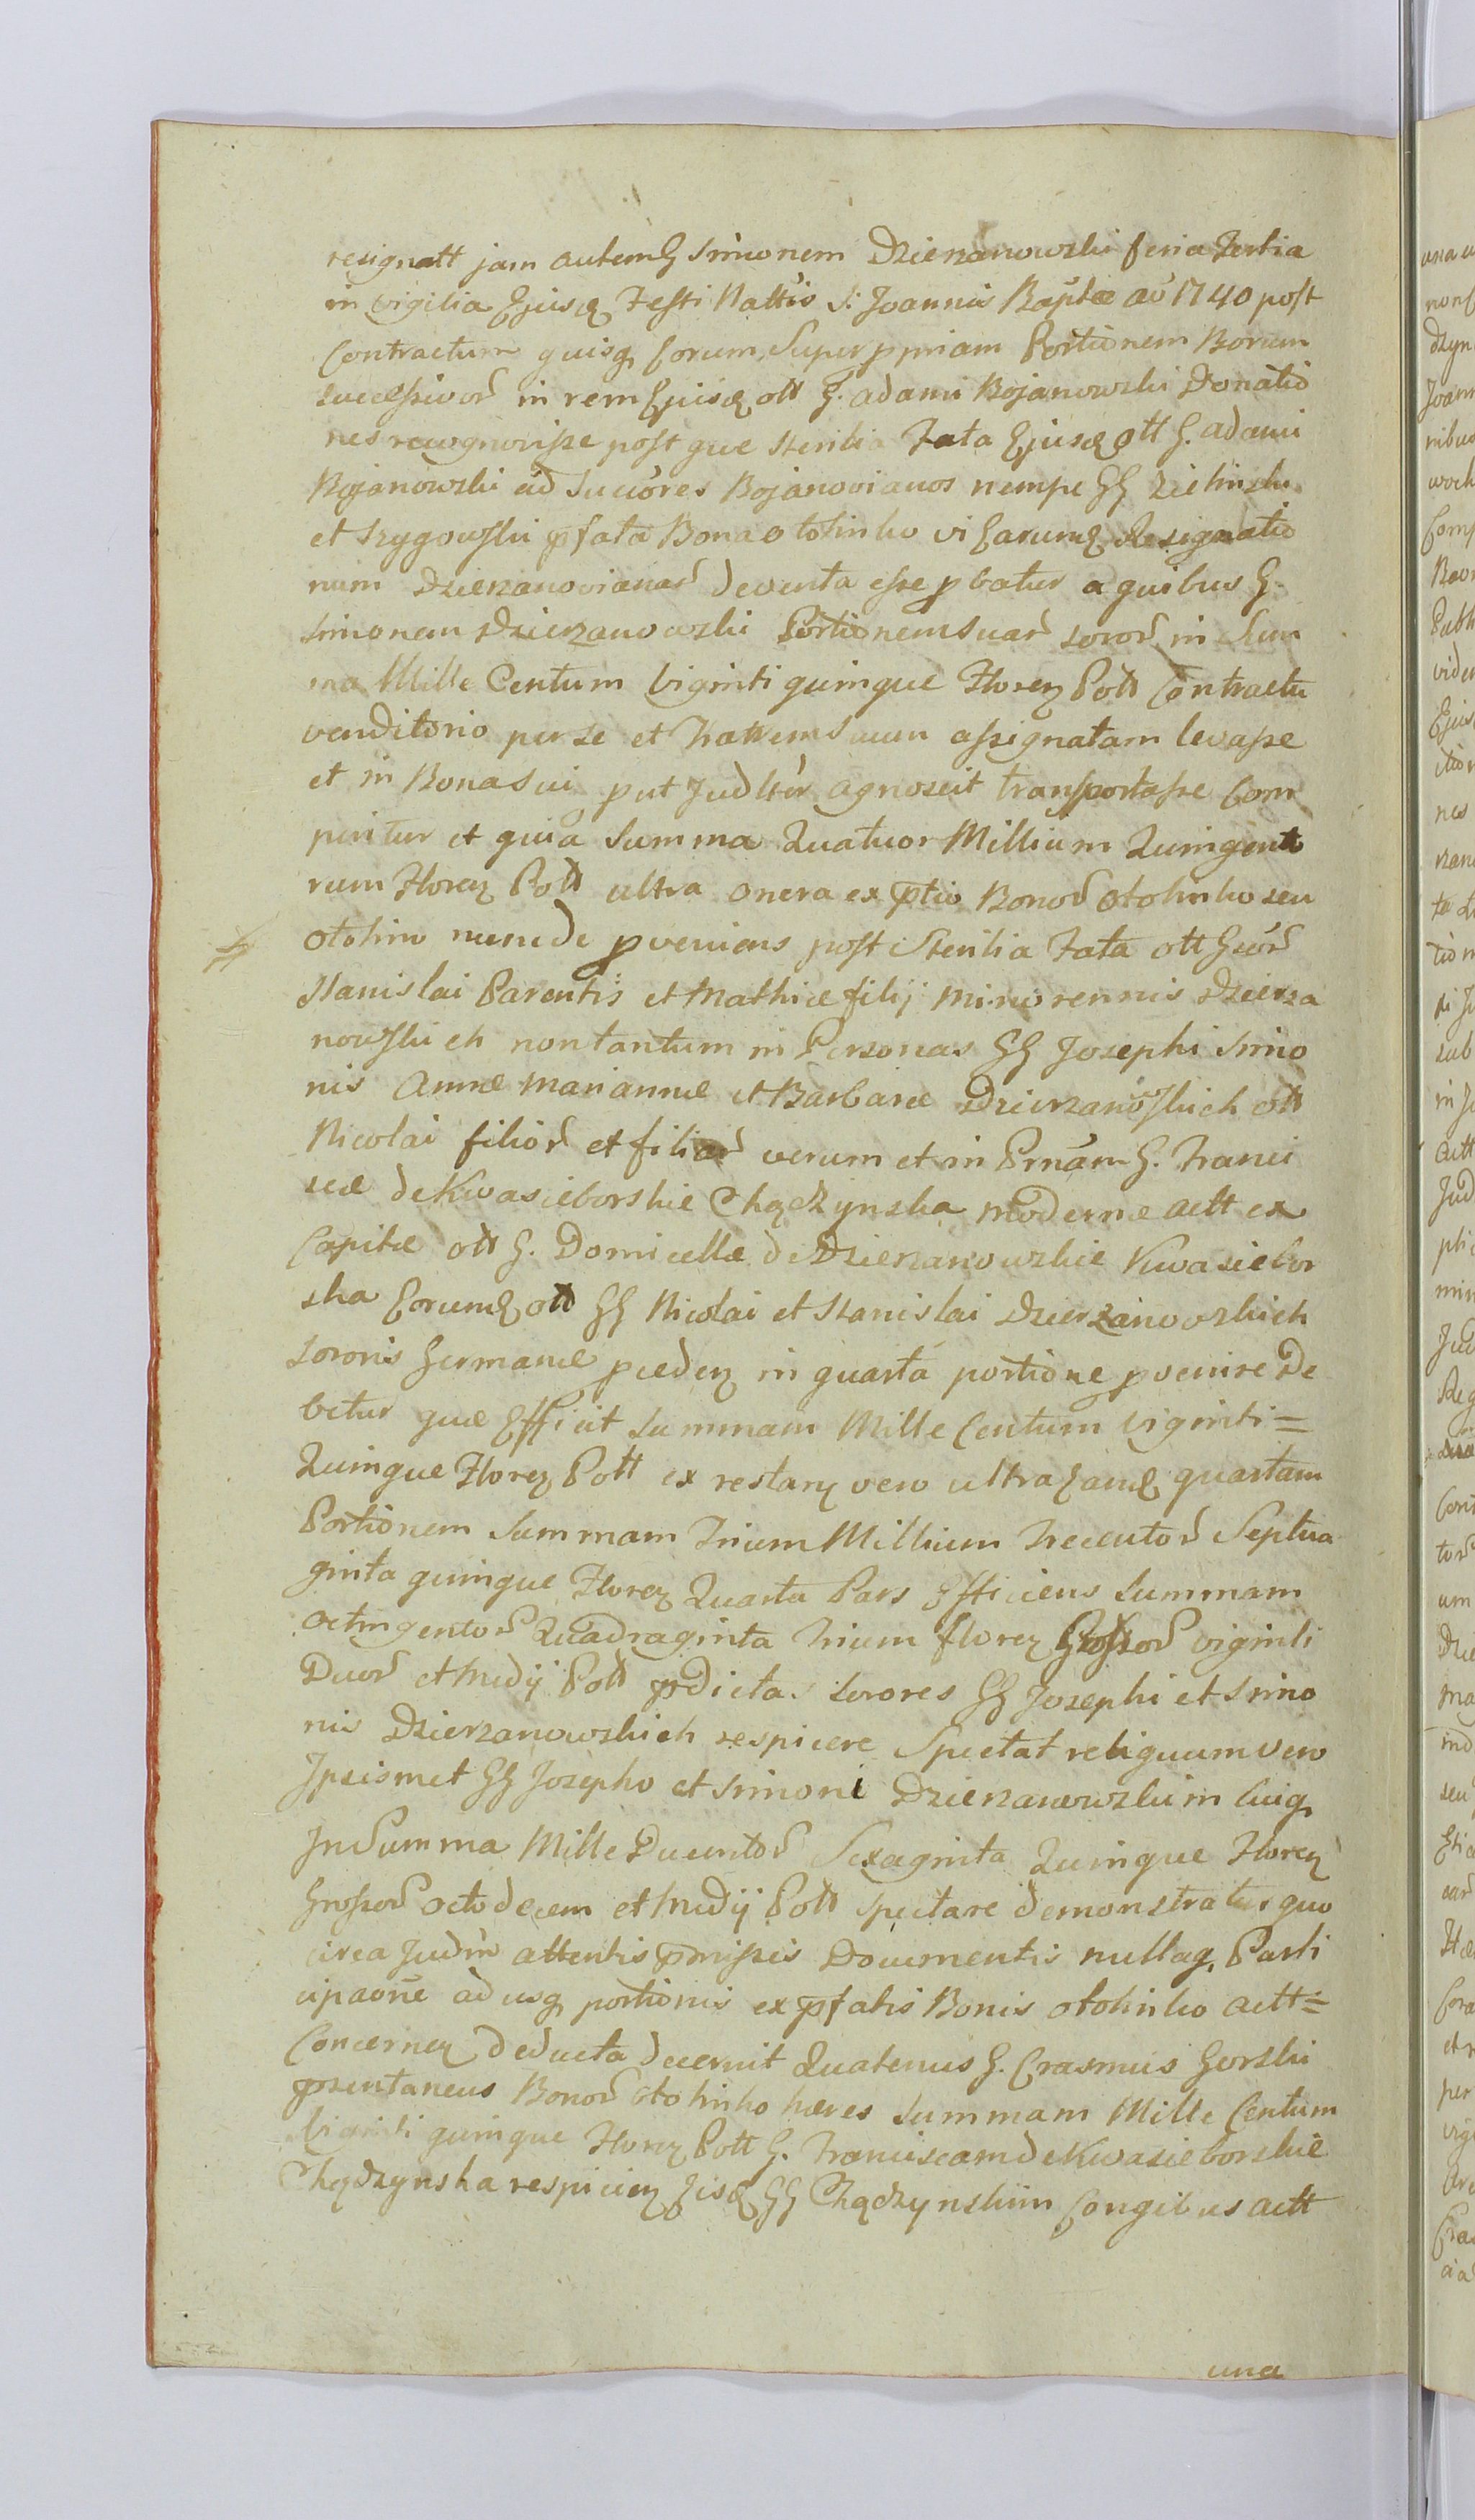 resignatt jam autem G Simonem Dzierzanowski feria Tertia
in Vigilia Ejusd Festi Nattis S: Joannis Baptae aō 1740 post
Contractum quisq eorum Super ppriam Portionem Borum
successivor in rem Ejusd ott G. adami Bojanowski Donatio
nes recognovisse post que sterilia Fata Ejusd ott G. adami
Bojanowski ad Succōres Bojanovianos nempe GG Zielinski
et Szygowski pfata Bona otolinko vi Earumd Resignatio
num Dzierzanovianar deventa esse pbatur a quibus G.
Simonem Dzierzanowski Portionem Suar soror in Sum
ma Mille Centum Viginti quinque Floren Poll Contractu
venditorio per se et Frattrem Suum assignatam levasse
et in Bona Sui put Judltēr agnoscit transportasse Com
peritur et quia Summa Quatuor Millium Quingento
rum Floren Poll ultra onera ex ptio Bonor otolinko seu
otolino nunc de pveniens post Sterilia Fata ott Gsōr
Stanislai Parentis et Mathiae filij minorennis Dzierza
nowskich non tantum in Personas GG Josephi Simo
nis Annae Mariannae et Barbarae Dzierzanōskich ott
Nicolai filior et filiar verum et in Prnām G. Franci
scae de Kwasieborskie Chądzynska modernae actt ex
Capite ott G. Domicellae de Dzierzanowskie Kwasiebor
ska Eorumd ott GG Nicolai et Stanislai Dzierzanowskich
Sororis Germanae pceden in quarta portione pvenire De
betur quae Efficit Summam Mille Centum Viginti=
Quinque Floren Poll ex restan vero ultra Eamd quartam
Portionem Summam Trium Millium Trecentor Septua
ginta quinque Floren Quarta Pars Efficiens Summam
octingentor Quadraginta Trium floren Grossor viginti
Duor et Medij Poll pdictas Sorores GG Josephi et Simo
nis Dzierzanowskich respicere Spectat reliquum vero
Ipsismet GG Josepho et Simoni Dzierzanowskim cuiq
In Summa Mille Ducentor Sexaginta Quinque Floren
Grossor octodecem et Medij Poll spectare demonstratur quo
circa Judm attentis pmissis Documentis nullaq Parti
cipaōne ad usq portionis ex pfatis Bonis otolinko actt=
Concernen deducta decernit Quatenus G. Erasmus Gorski
psentaneus Bonor otolinko haeres Summam Mille Centum
Viginti quinque Floren Poll G. Franciscam de Kwasieborskie
Chądzynska respicien Eisd GG Chądzynskim Congibus actt
una